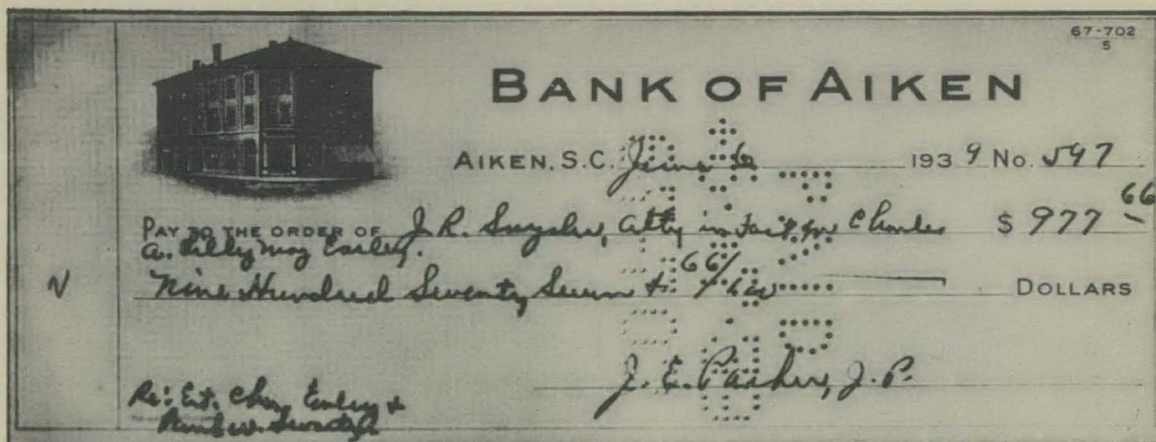 67-702
5
BANK OF AIKEN
AIKEN, S.C. June 6 1939 No. 597
PAY TO THE ORDER OF J. R. atty in fact for Charles $ 977 66
Nine Hundred Seventy Seven & 66/100 DOLLARS
J. E. Parker, J. P.
Re: Est. Chas. &